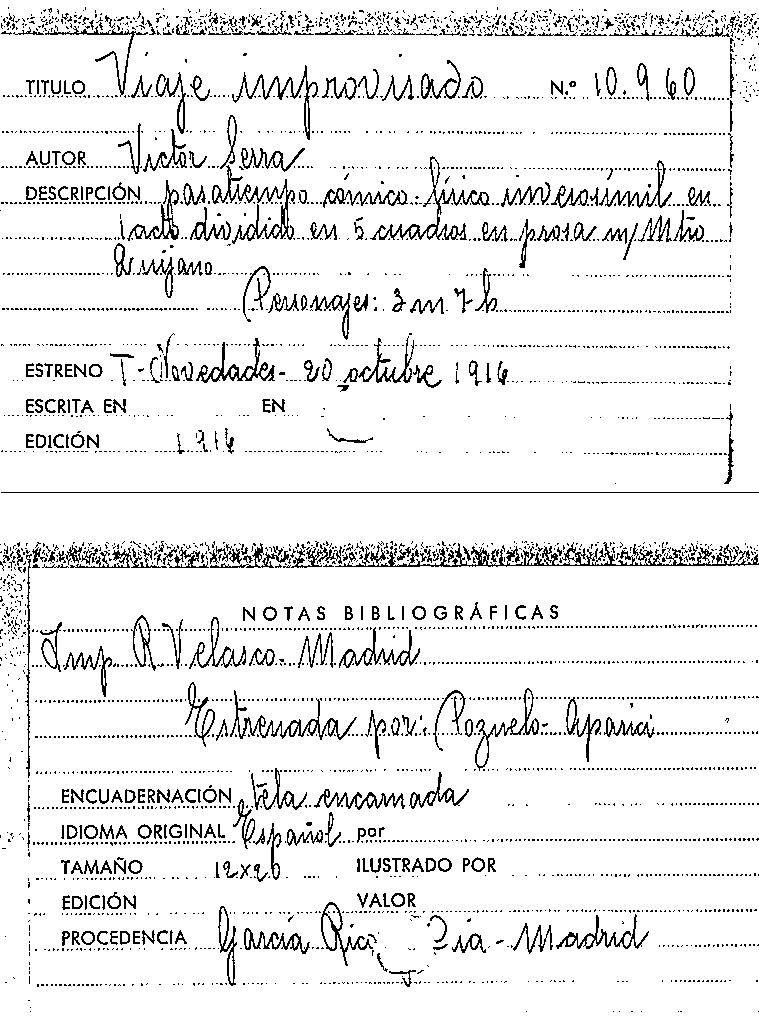 TITULO Viaje improvisado N.º 10.960
AUTOR Victor Serra
DESCRIPCIÓN pasatiempo cómico-lírico inverosímil en
1 acto dividido en 5 cuadros en prosa m/ Mtro
Quijano
Personajes: 3 m 7 h
ESTRENO T-Novedades- 20 octubre 1916
ESCRITA EN EN
EDICIÓN 1916
NOTAS BIBLIOGRÁFICAS
Imp R Velasco- Madrid
Estrenada por: Pozuelo-Aparici
ENCUADERNACIÓN tela encarnada
IDIOMA ORIGINAL Español por
TAMAÑO 12x20 ILUSTRADO POR
EDICIÓN VALOR
PROCEDENCIA García Rico - Madrid